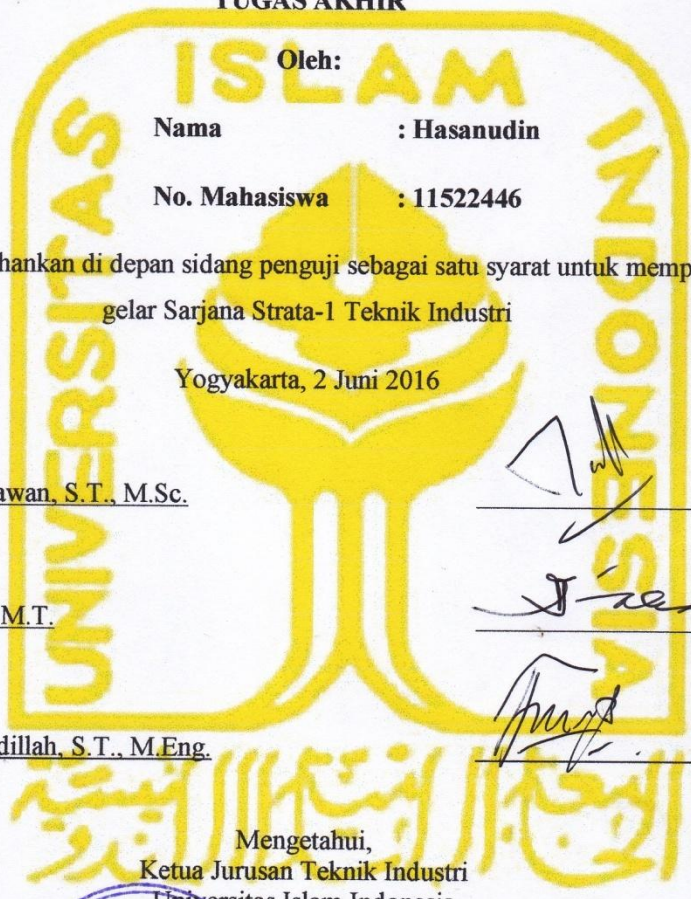 TUGAS AKHIR
Oleh:
Nama : Hasanudin
No. Mahasiswa : 11522446
hankan di depan sidang penguji sebagai satu syarat untuk memp
gelar Sarjana Strata-1 Teknik Industri
Yogyakarta, 2 Juni 2016
awan, S.T., M.Sc.
M.T.
dillah, S.T., M.Eng.
Mengetahui,
Ketua Jurusan Teknik Industri
Universitas Islam Indonesia
UNIVERSITAS ISLAM INDONESIA